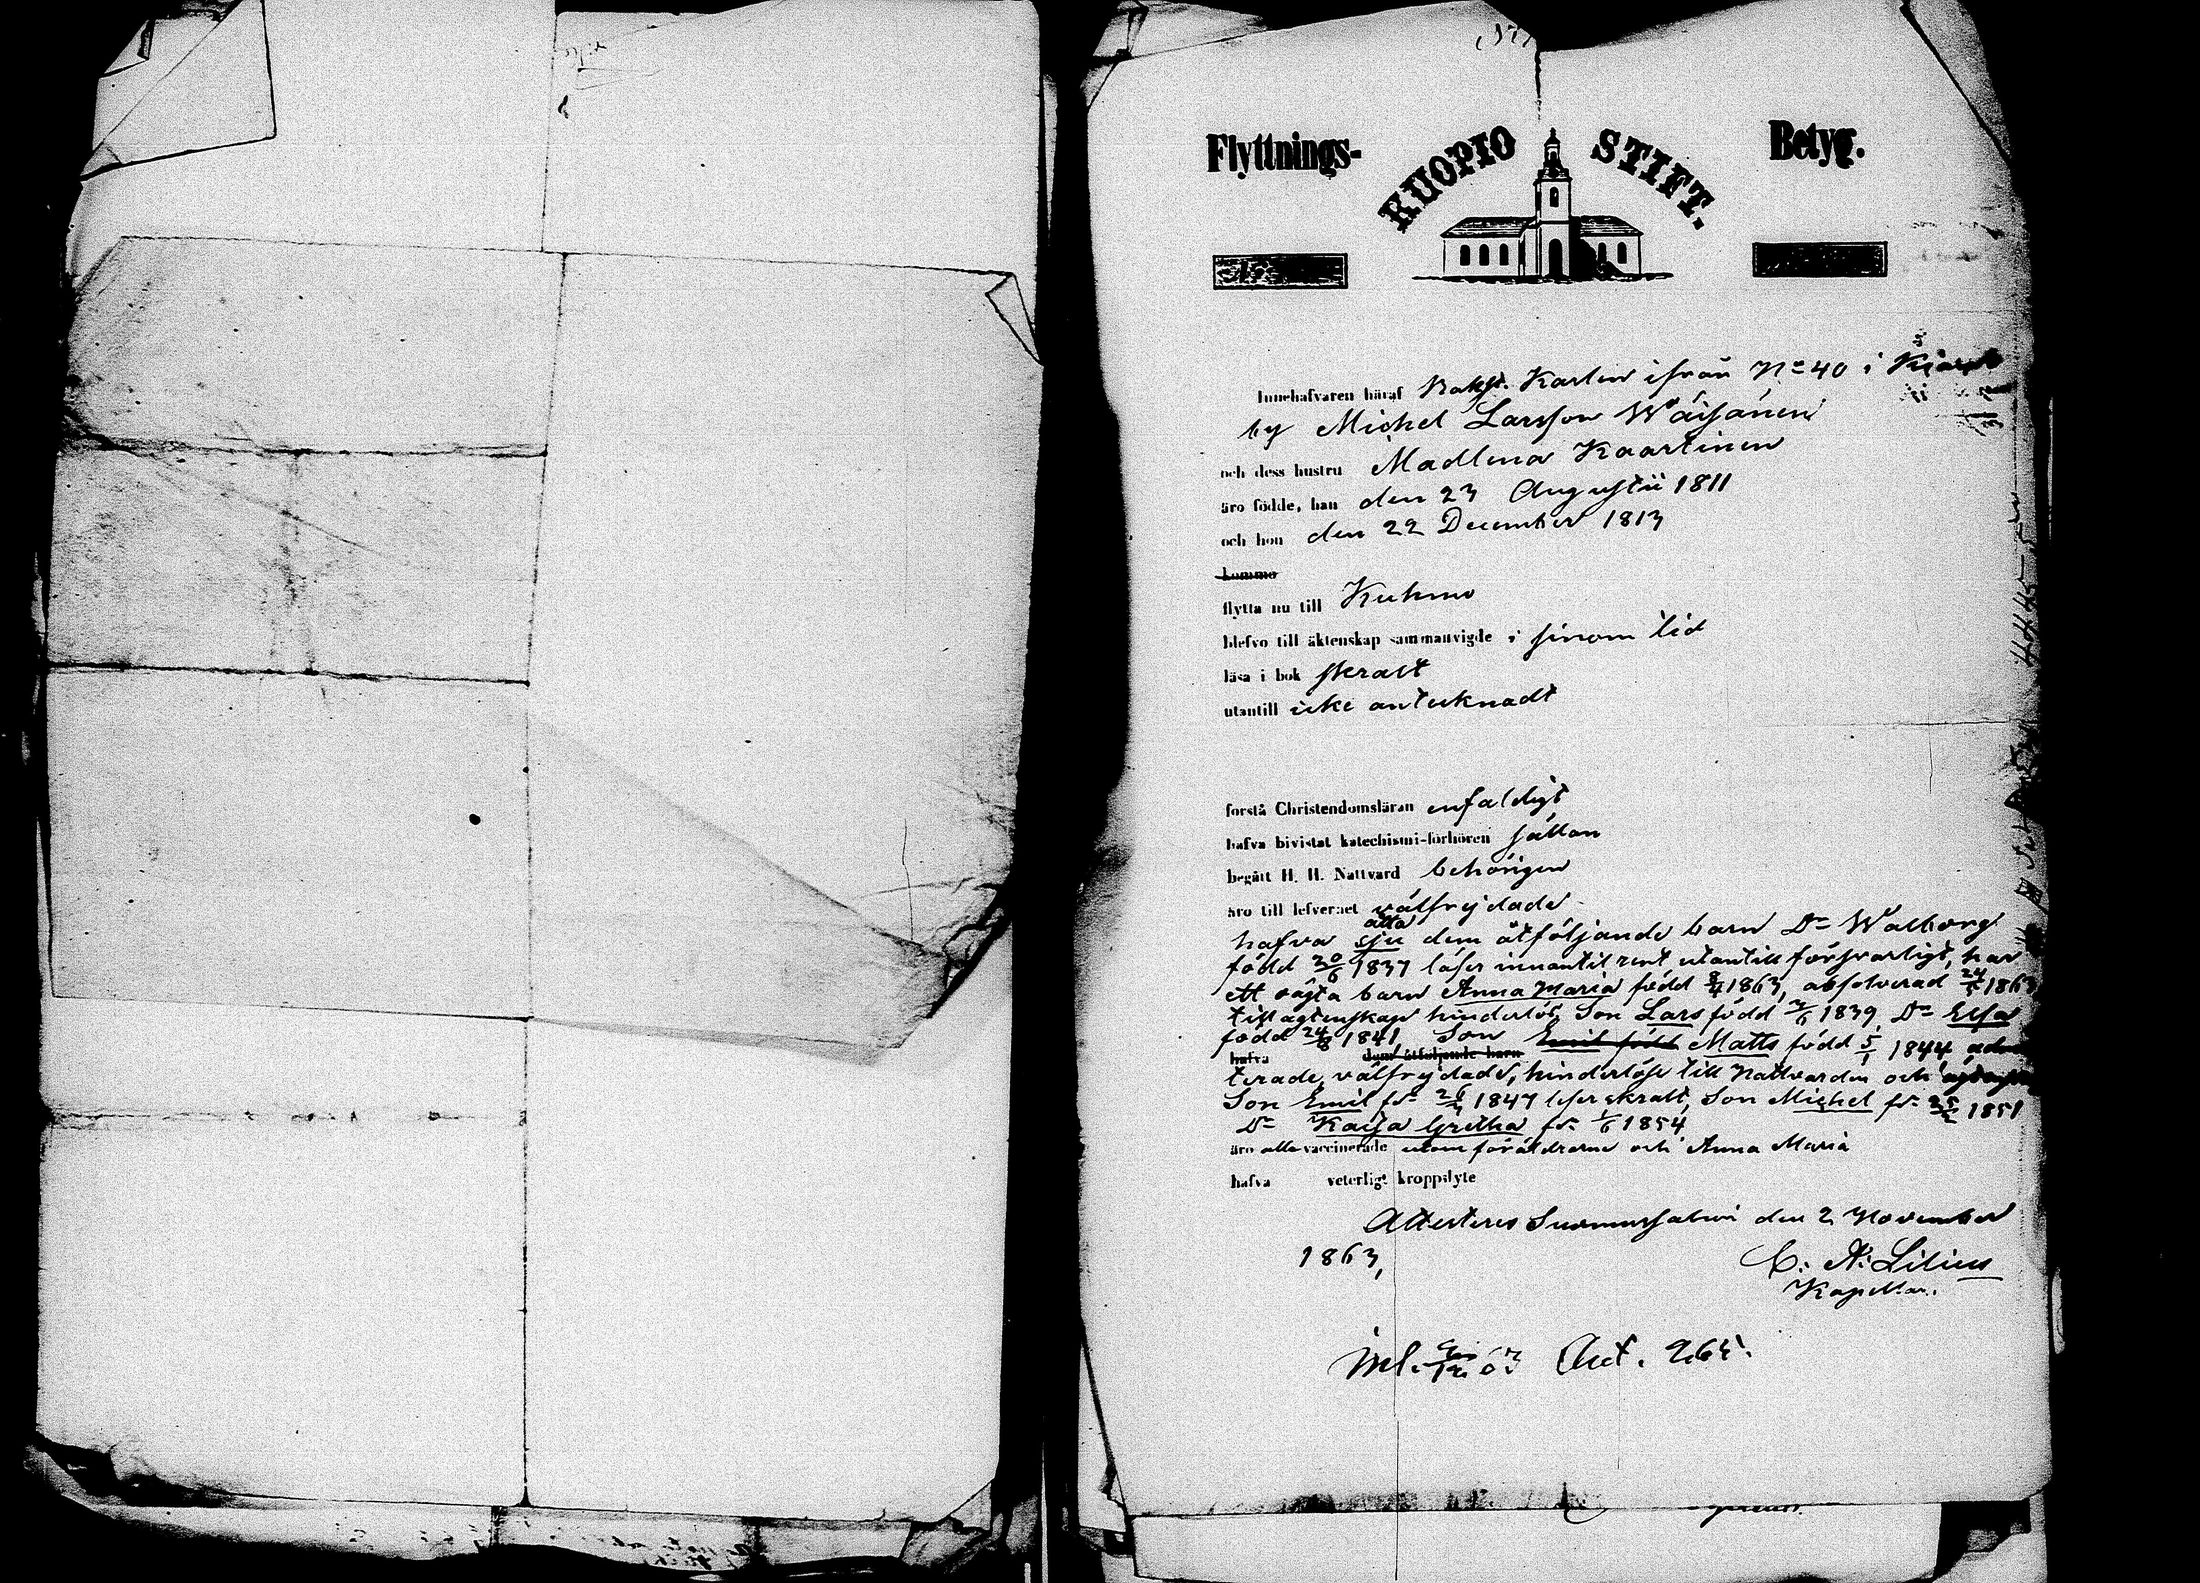 Flyttnings- KUOPIO STIFT. Betyg.
Innehafvaren häraf Karlen ifrån No 40 i
by Michel Larsson Wäisänen
och dess hustru Madlena Kaartinen
äro födde, han den 23 Augustii 1811
och hon den 22 December 1813
komma
flytta nu till Kuhmo
blefvo till äktenskap sammanvigde i sinom tid
läsa i bok skralt
utantill icke antecknadt
förstå Christendomsläran enfaldigt
hafva bivistat katechismi-förhören sällan
begått H. H. Nattvard behörigen
äro till lefvernet välfrejdade
åtta
hafva sju dem åtföljande barn Dr Walborg
född 20/6 1837 läser innantil rent utantill försvarligt, har
ett oägta barn Anna Maria född 8/4 1863, absolverad 24/5 1863
till ägtenskap hinderlös, Son Lars född 2/6 1839 Dr Elsa
född 24/8 1841, Son Emil född Matts född 5/1 1844
hafva dem åtföljande barn
terade, välfrejdade, hinderlöse till Nattvarden och
Son Emil fd 26/4 1847 läser skralt, Son Michel fd 25/2 1851
Dr Kaisa Gretha fd 1/6 1854
äro alla vaccinerade utom föräldrarne och Anna Maria
hafva veterligt kroppslyte
Attesteres Suomussalmi den 2 November
1863,
C. A. Lilius
Kapellan.
Inl. 63 Act. 265.